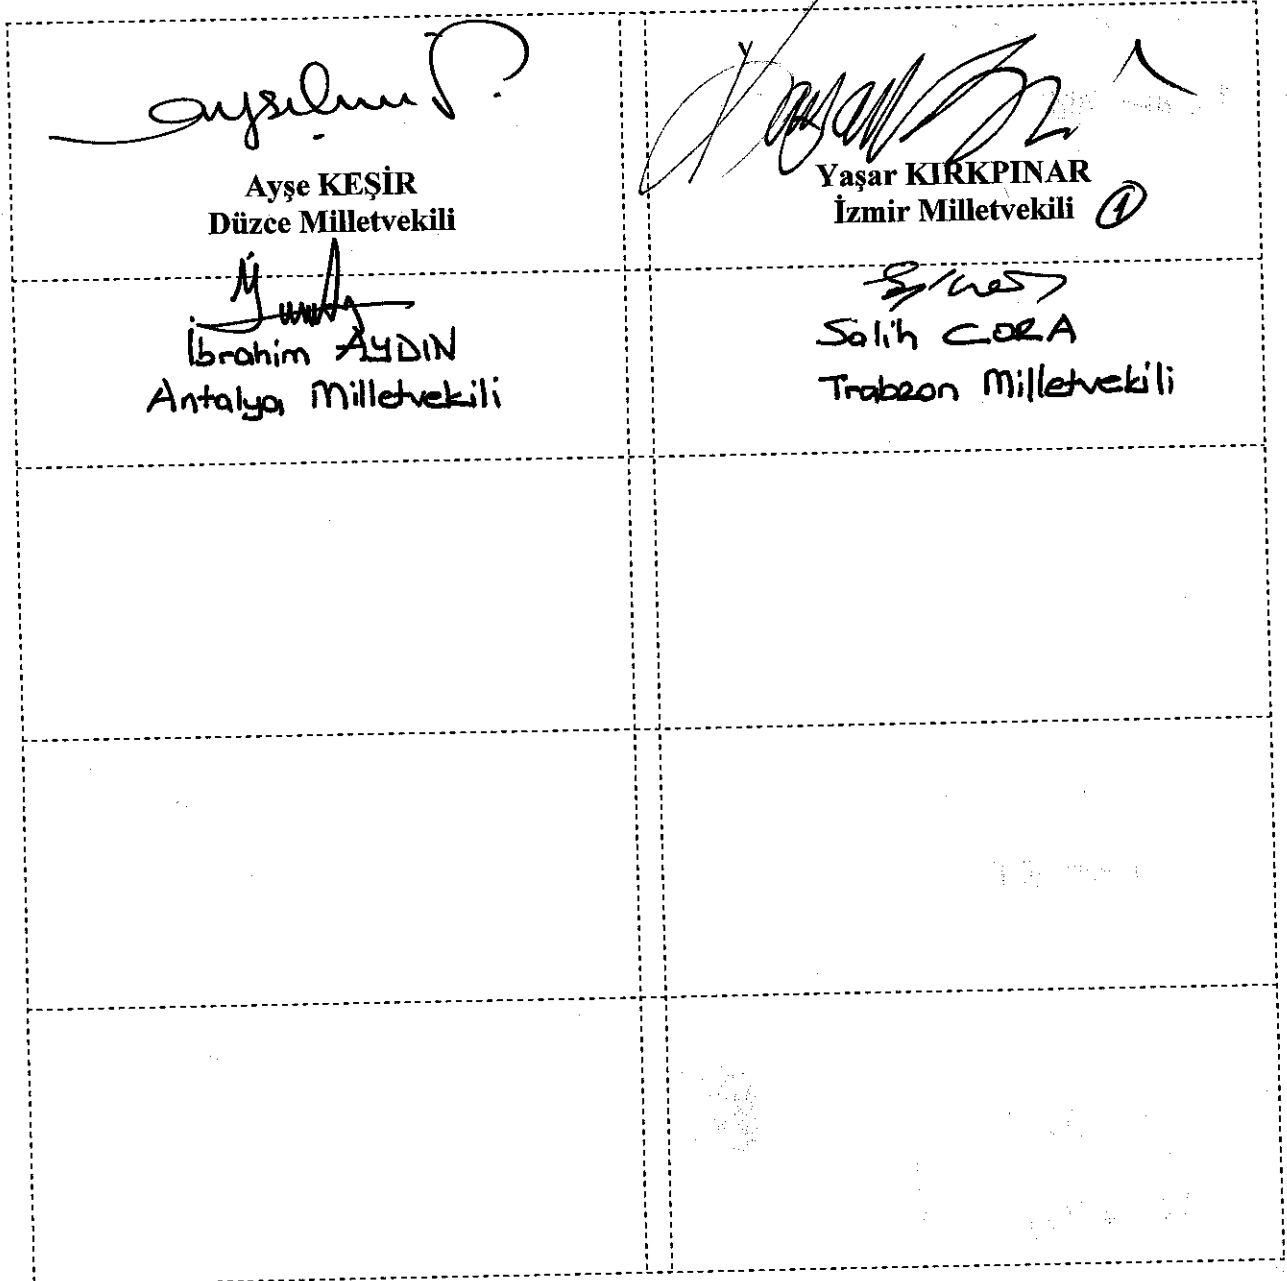 Ayşe KEŞİR
Düzce Milletvekili
Yaşar KIRKPINAR
İzmir Milletvekili 1
İbrahim AYDIN
Antalya Milletvekili
Salih CORA
Trabzon Milletvekili